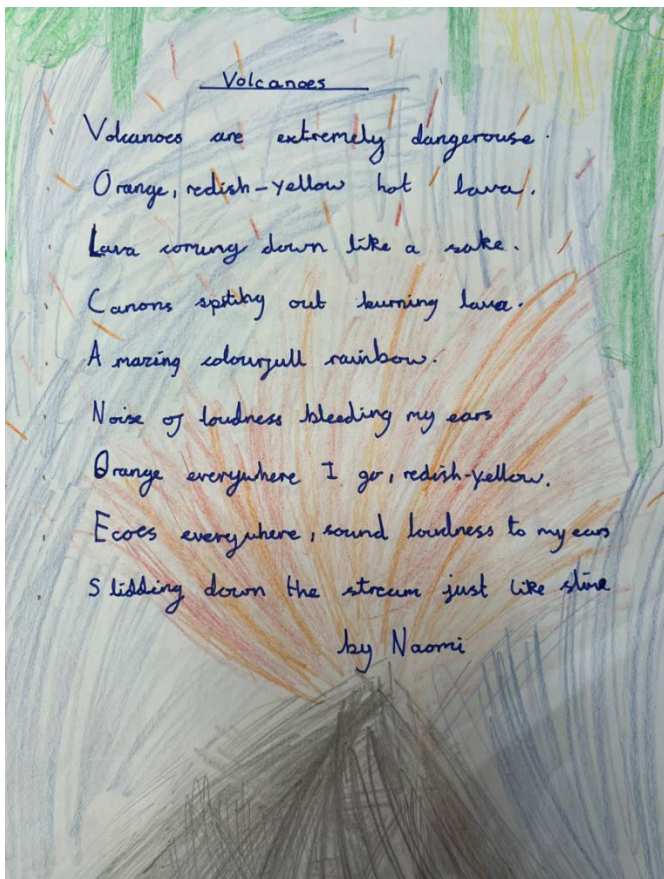 Volcanoes
Volcanoes are extremely dangerouse.
Orange, redish-yellow hot lava.
Lava coming down like a sake.
Canons spitihy out burning lava.
Amazing colourfull rainbow.
Noise of loudness bleeding my ears
Orange everywhere I go, redish-yellow.
Ecoes everywhere, sound loudness to my ears
Slidding down the stream just like slime
by Naomi